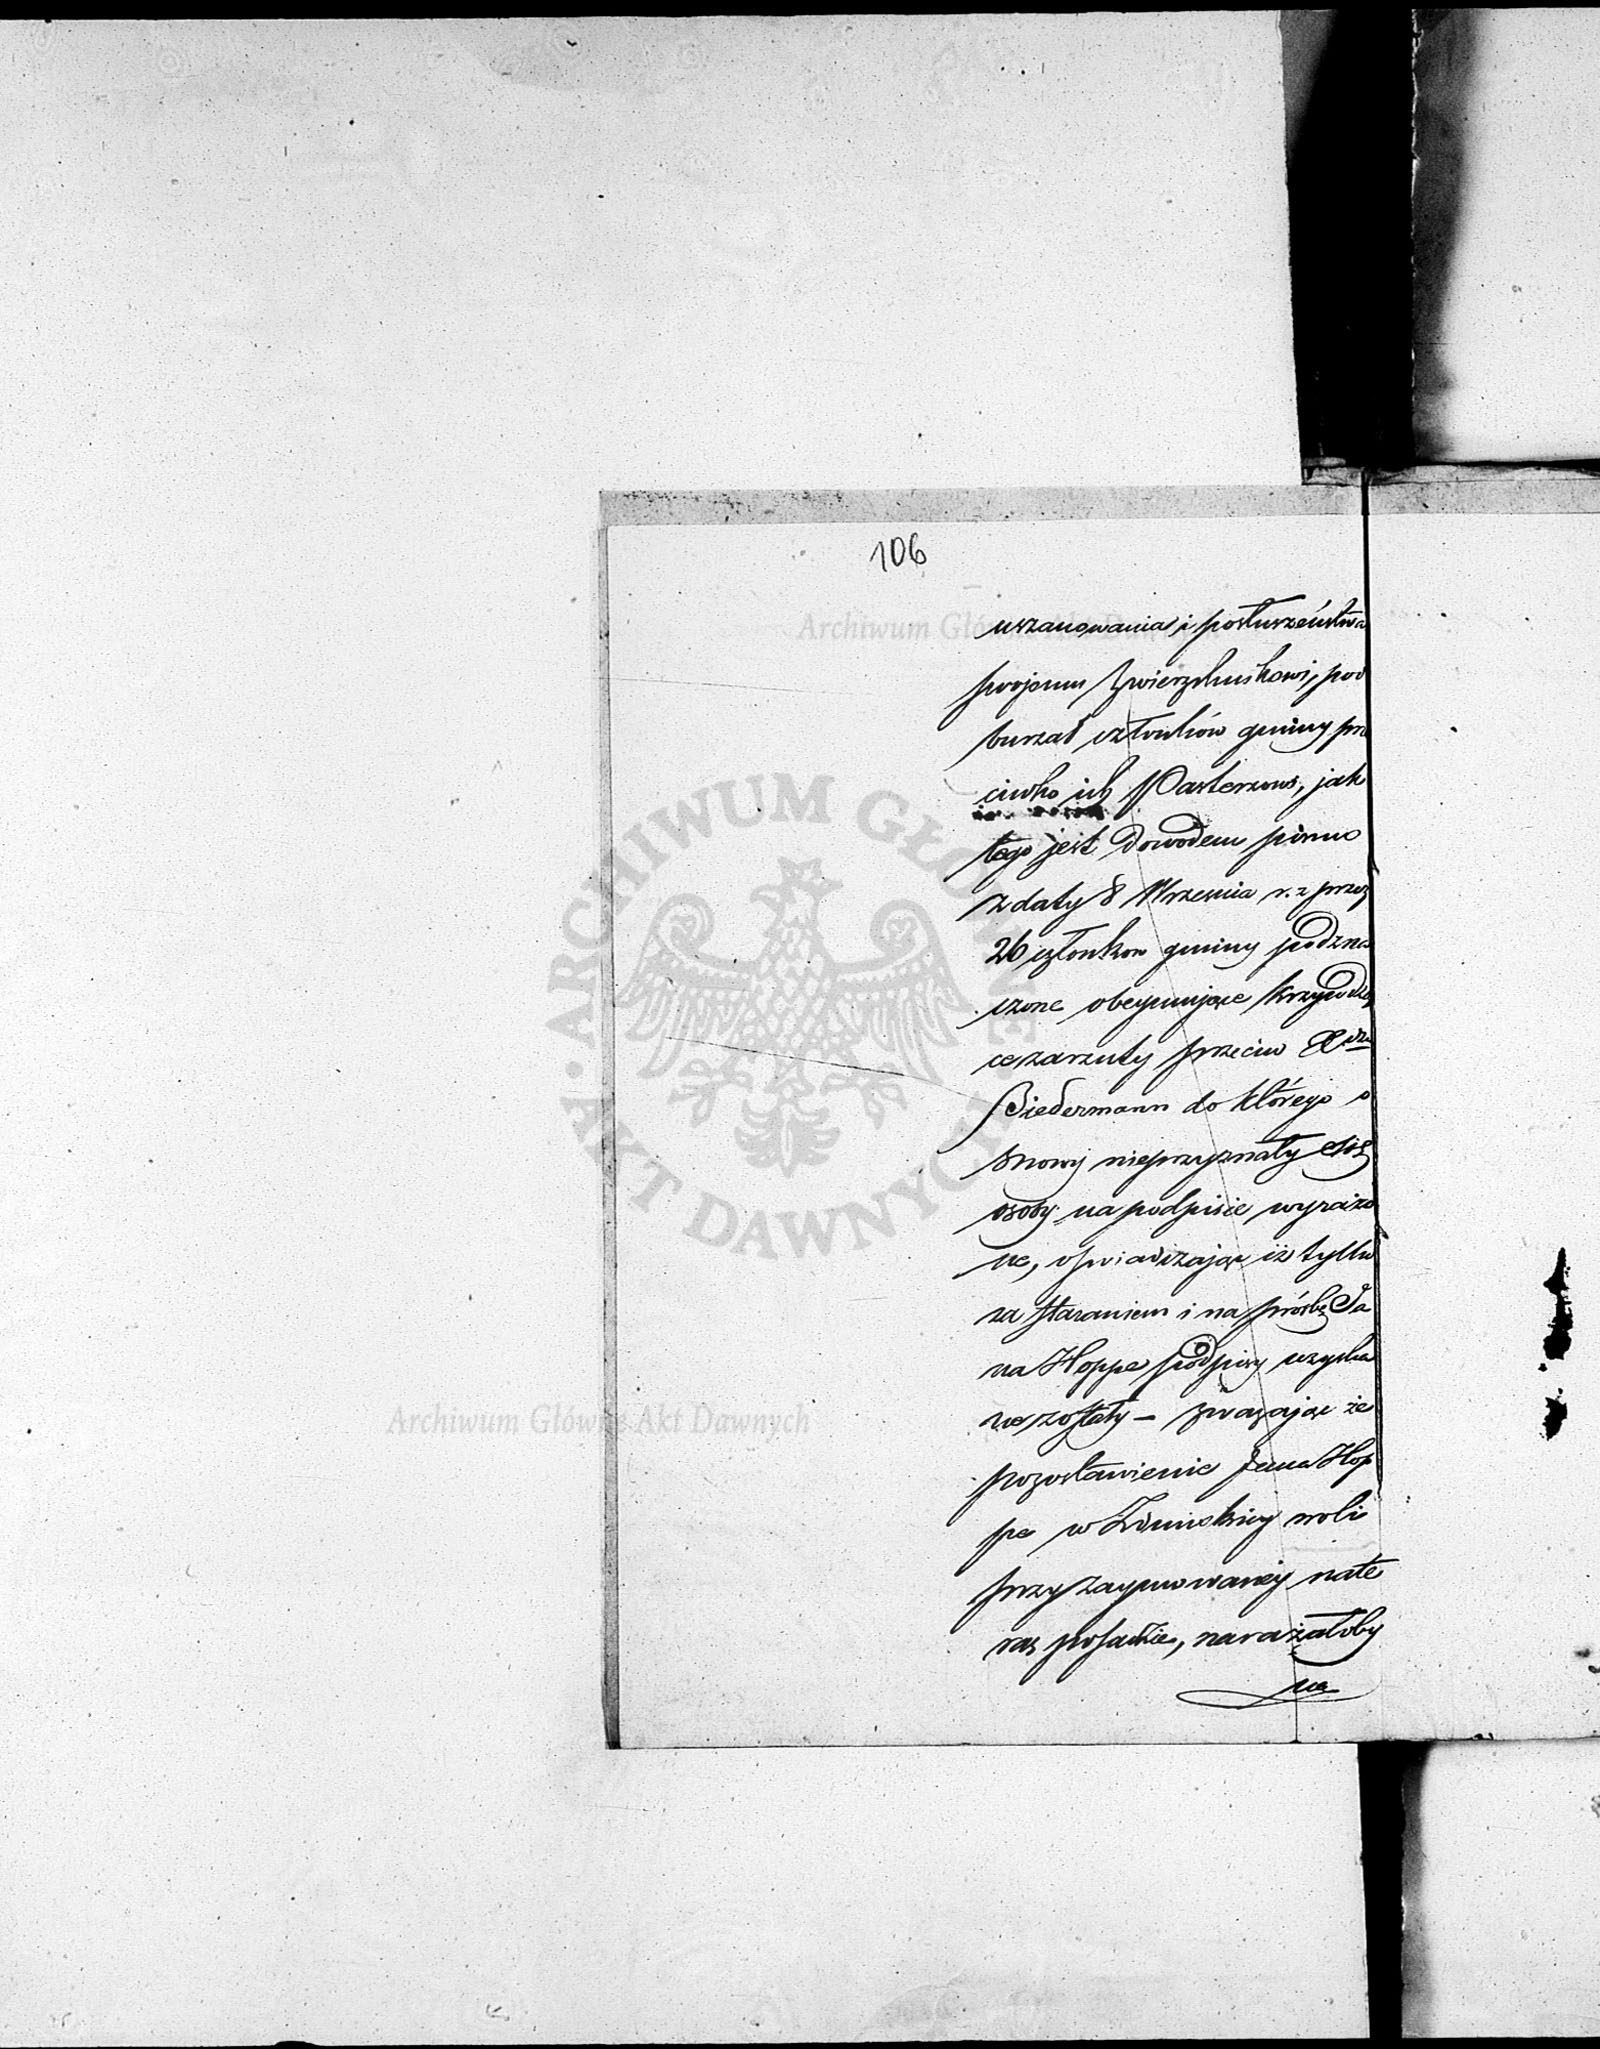 106
uszanowania i posłuszeństwa
swojemu Zwierzchnikowi, pod
burzał członków gminy prze
ciwko ich Pasterzowi, jak
tego jest dowodem pismo
z daty 8 Września r. z przez
26 członkow gminy podzna
czone obeymujące krzywdzą
ce zarzuty przeciw
Biedermann do którego o
snowy nieprzyznały się
osoby na podpisie wyrażo
ne, oświadczając iż tylko
za staraniem i na prośbę Ja
na Hoppe podpisy uzyska
ne zostały – zważając że
pozostawienie Jana Hop
pe w woli
przy zaymowaney na te
raz posadzie, narażałoby
na
Archiwum Główne Akt Dawnych
ARCHIWUM GŁÓWNE · AKT DAWNYCH ·
Archiwum Główne Akt Dawnych